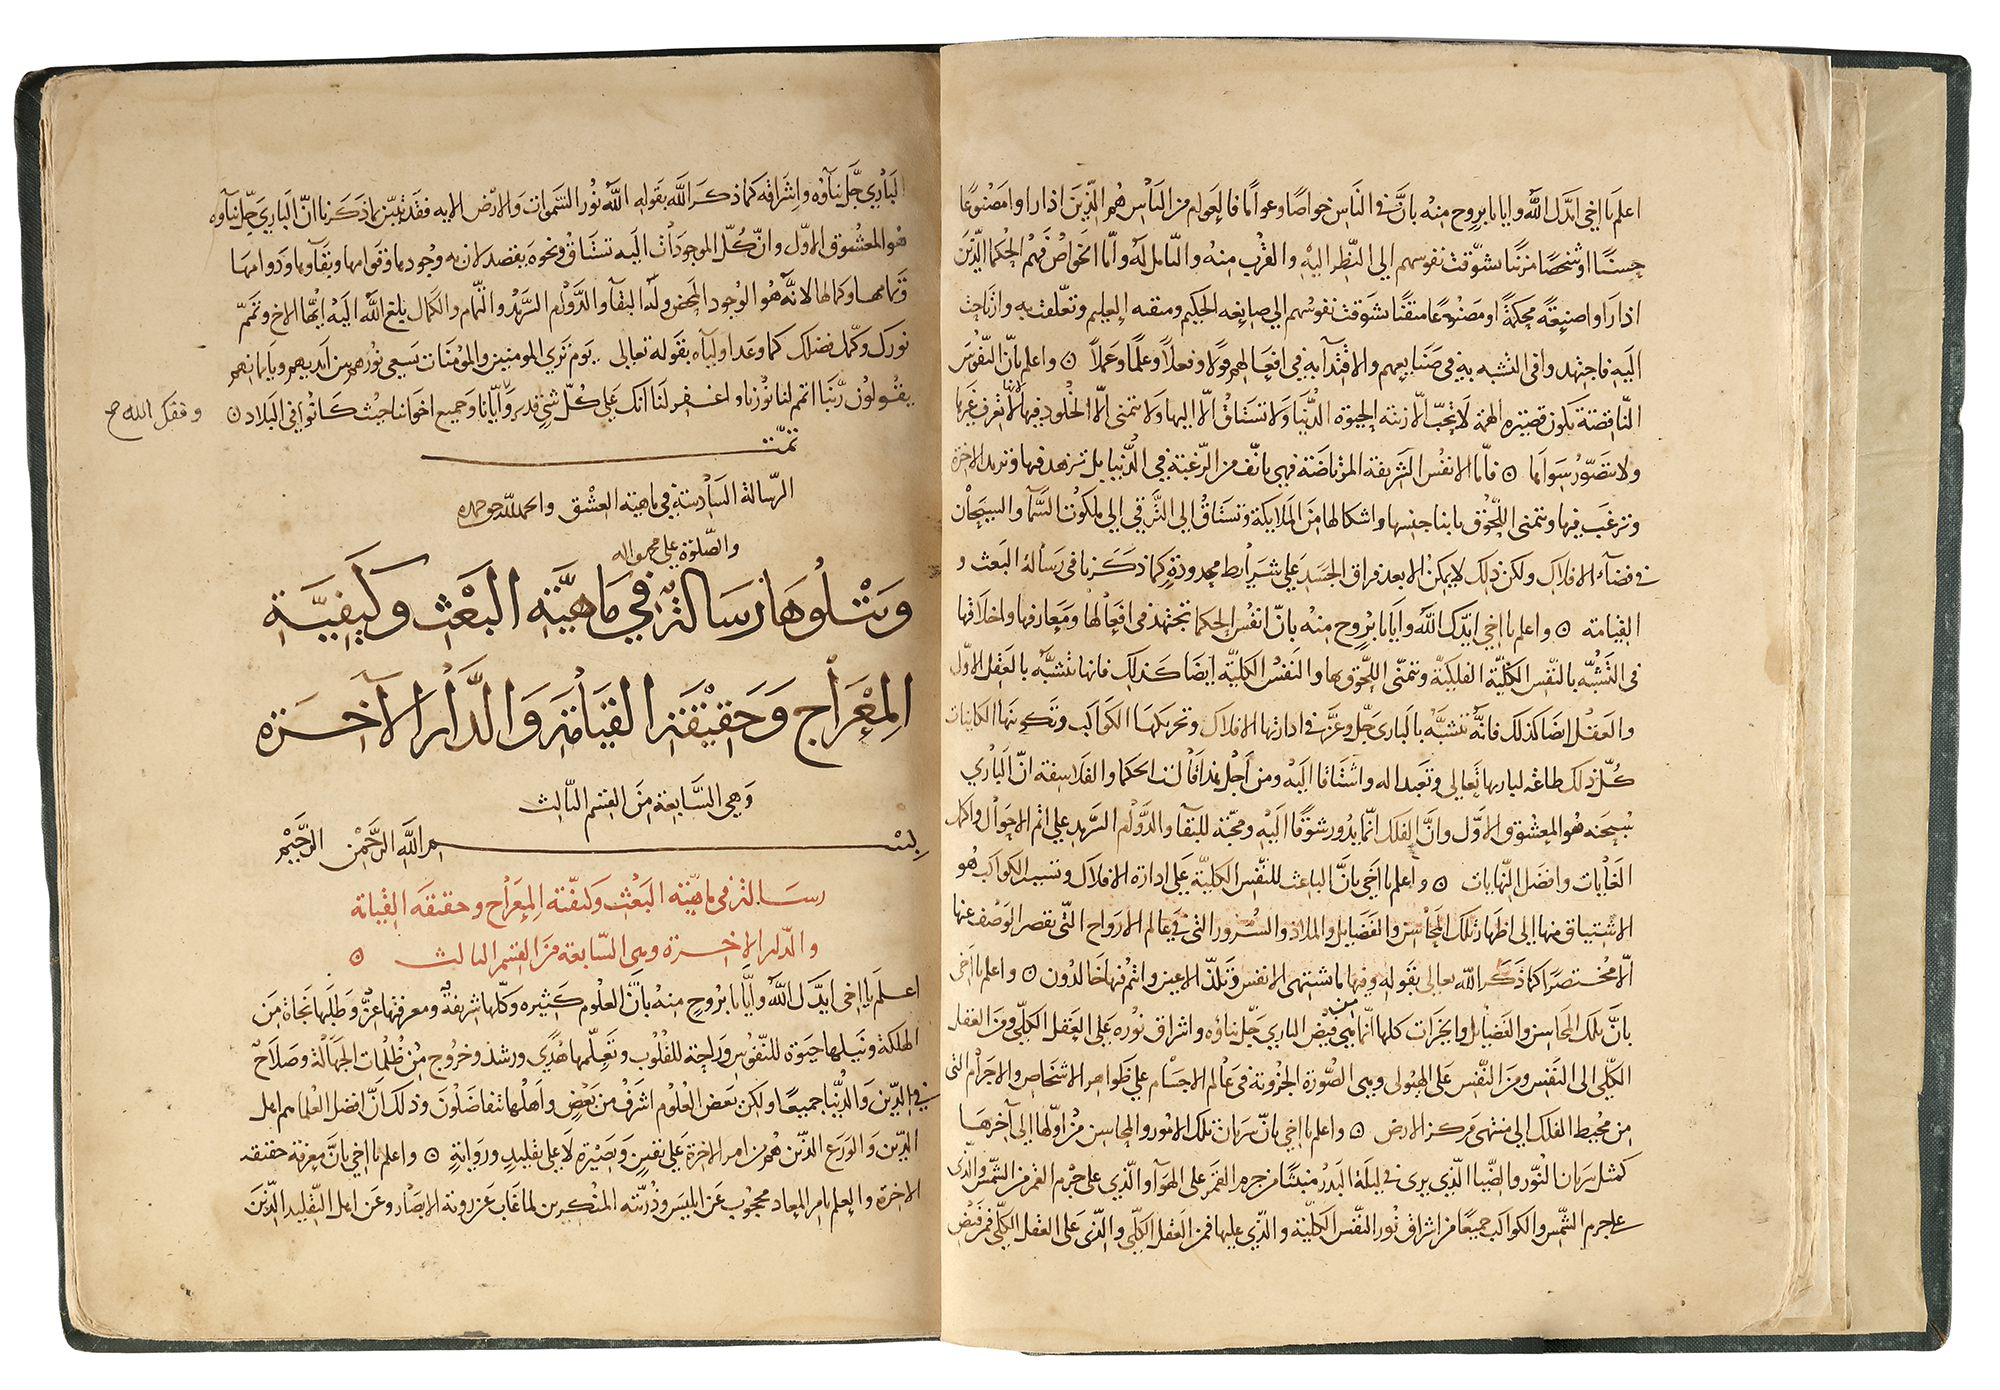 اعلم يا اخي ايدك الله وايانا بروح منه بان في الناس خواصا وعواما فالعوام من الناس هم الذين اذا راوا مصنوعا
حسنا او شخصا مزينا تشوقت نفوسهم الى النظر اليه والقرب منه والتامل له واما الخواص فهم الحكما الذين
اذا راوا صنيعة محكمة او مصنوعا متقنا تشوقت نفوسهم الى صانعه الحكيم ومتقنه العليم وتعلقت به وارتاحت
اليه فاجتهدوا في التشبه به في صنايعهم والاقتدآ به في افعالهم قولا وفعلا وعلما وعملا ⊙ واعلم بان النفوس
الناقصة تكون قصيرة الهمة لا تحب الا زينة الحيوة الدنيا ولا تشتاق الا اليها ولا تتمنى الا الخلود فيها لانها لا تعرف غيرها
ولا تتصور سواها ⊙ فاما الانفس الشريفة المرتاضة فهي تانف من الرغبة في الدنيا بل تزهد فيها وتريد الاخرة
وترغب فيها وتتمنى اللحوق بابنا جنسها واشكالها من الملايكة وتشتاق الى الترقي الى ملكوت السمآ والسيحان
في فضآء الافلاك ولكن ذلك لا يمكن الا بعد فراق الجسد على شرايط محدودة كما ذكرنا في رسالة البعث و
القيامة ⊙ واعلم يا اخي ايدك الله وايانا بروح منه بان انفس الحكما تجتهد في افعالها ومعارفها واخلاقها
في التشبه بالنفس الكلية الفلكية وتتمنى اللحوق بها والنفس الكلية ايضا كذلك فانها تتشبه بالعقل الاول
والعقل ايضا كذلك فانه يتشبه بالباري جل وعز في ادارتها الافلاك وتحريكها الكواكب وتكوينها الكاينات
كل ذلك طاعة لباريها تعالى وتعبدا له واشتياقا اليه ومن اجل هذا قالت الحكما والفلاسفة ان الباري
سبحنه هو المعشوق الاول وان الفلك انما يدور شوقا اليه ومحبة للبقآ والدوام السرمد على اتم الاحوال واكمل
الغايات وافضل النهايات ⊙ واعلم يا اخي بان الباعث للنفس الكلية على ادارة الافلاك وتسيير الكواكب هو
الاشتياق منها الى اظهار تلك المحاسن والفضايل والملاذ والسرور التي في عالم الارواح التي يقصر الوصف عنها
الا مختصرا كما ذكر الله تعالى بقوله وفيها ما تشتهي الانفس وتلذ الاعين وانتم فيها خالدون ⊙ واعلم يا اخي
بان تلك المحاسن والفضايل والخيرات كلها انما هي من فيض الباري جل ثناؤه واشراق نوره على العقل الكلي ومن العقل
الكلي الى النفس ومن النفس على الهيولى وهي الصورة الجزوية في عالم الاجسام على ظواهر الاشخاص والاجرام التي
من محيط الفلك الى منتهى مركز الارض ⊙ واعلم يا اخي بان سريان تلك الانوار والمحاسن من اولها الى آخرها
كمثل سريان النور والضيا الذي يرى في ليلة البدر منبثا من جرم القمر على الهوآ والذي على جرم القمر من الشمس والذي
على جرم الشمس والكواكب جميعا من اشراق نور النفس الكلية والذي عليها فمن العقل الكلي والذى على العقل الكلي فمن فيض
الباري جل ثناؤه واشراقه كما ذكر الله بقوله الله نور السموات والارض الايه فقد تبين بما ذكرنا ان الباري جل ثناؤه
هو المعشوق الاول وان كل الموجودات اليه تشتاق ونحوه تقصد لان به وجودها وقوامها وبقآوها ودوامها
وتمامها وكمالها لانه هو الوجود المحض وله البقآ والدوام السرمد والتمام والكمال بلغك الله اليه ايها الاخ وتمم
نورك وكمل فضلك كما وعد اوليآه بقوله تعالى يوم ترى المومنين والمؤمنات يسعى نورهم بين ايديهم وبايمانهم
يقولون ربنا اتمم لنا نورنا واغفر لنا انك على كل شي قدير وايانا وجميع اخواننا حيث كانوا في البلاد ⊙
وفقك الله
تمت
الرسالة السادسة في ماهية العشق والحمد لله حق حمده
والصلوة على محمد واله
وتتلوها رسالة في ماهية البعث وكيفية
المعراج وحقيقة القيامة والدار الآخرة
وهي السابعة من القسم الثالث
بسم الله الرحمن الرحيم
رسالة في ماهية البعث وكيفية المعراج وحقيقة القيامة
والدار الاخرة وهي السابعة من القسم الثالث ⊙
اعلم يا اخي ايدك الله وايانا بروح منه بان العلوم كثيرة وكلها شريفة ومعرفتها عز وطلبها نجاة من
الهلكة ونيلها حيوة للنفوس وراحة للقلوب وتعلمها هدى ورشد وخروج من ظلمات الجهالة وصلاح
في الدين والدنيا جميعا ولكن بعض العلوم اشرف من بعض واهلها متفاضلون وذلك ان افضل العلما هم اهل
الدين والورع الذين هم من امر الاخرة على يقين وبصيرة لا على تقليد ورواية ⊙ واعلم يا اخي بان معرفة حقيقة
الاخرة والعلم بامر المعاد محجوب عن ابليس وذريته المنكرين لما غاب عن روية الابصار وعن اهل التقليد الذين